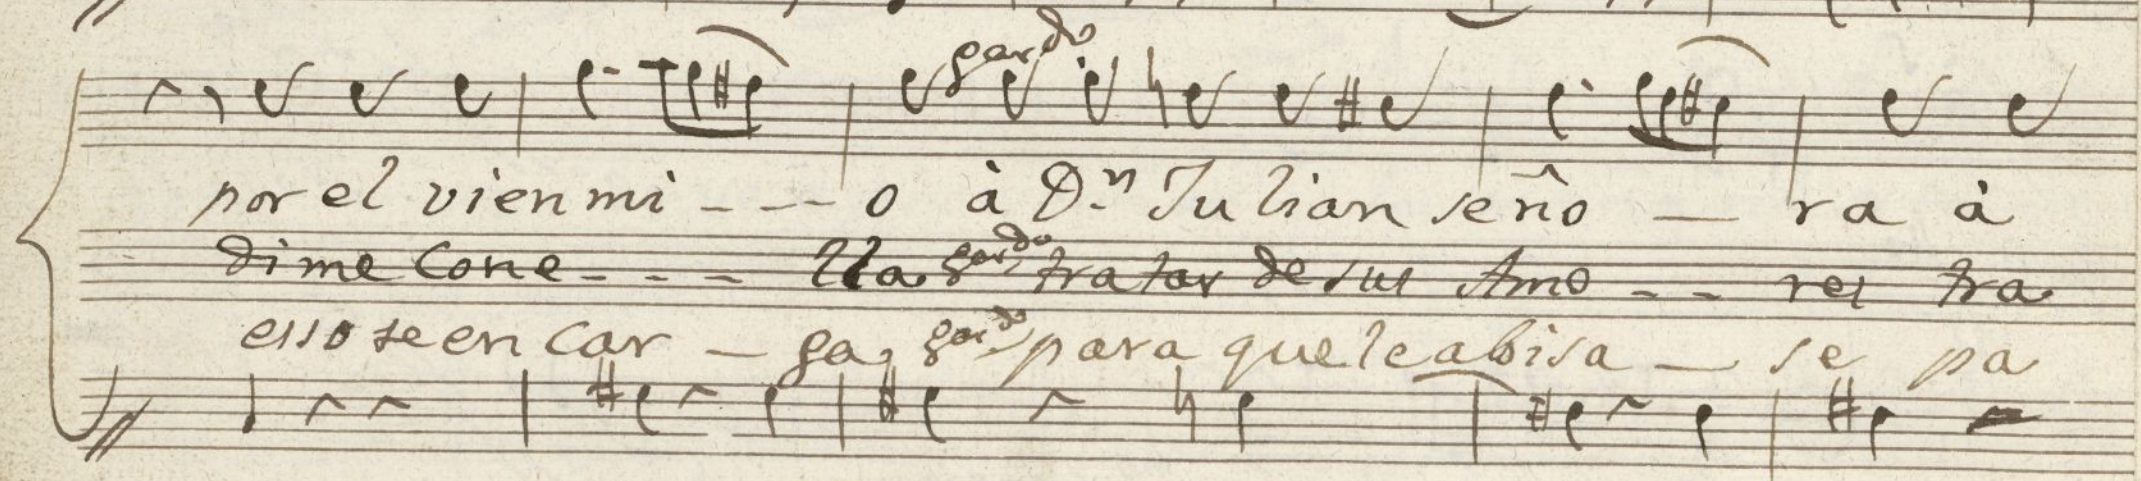 gar.do
por el vien mi - - - o à D.n Julian seño - ra à
dime Cone - - - lla gar.do tratar de sus Amo - - res tra
esso se en car - ga, gar.do para que le abisa - se pa